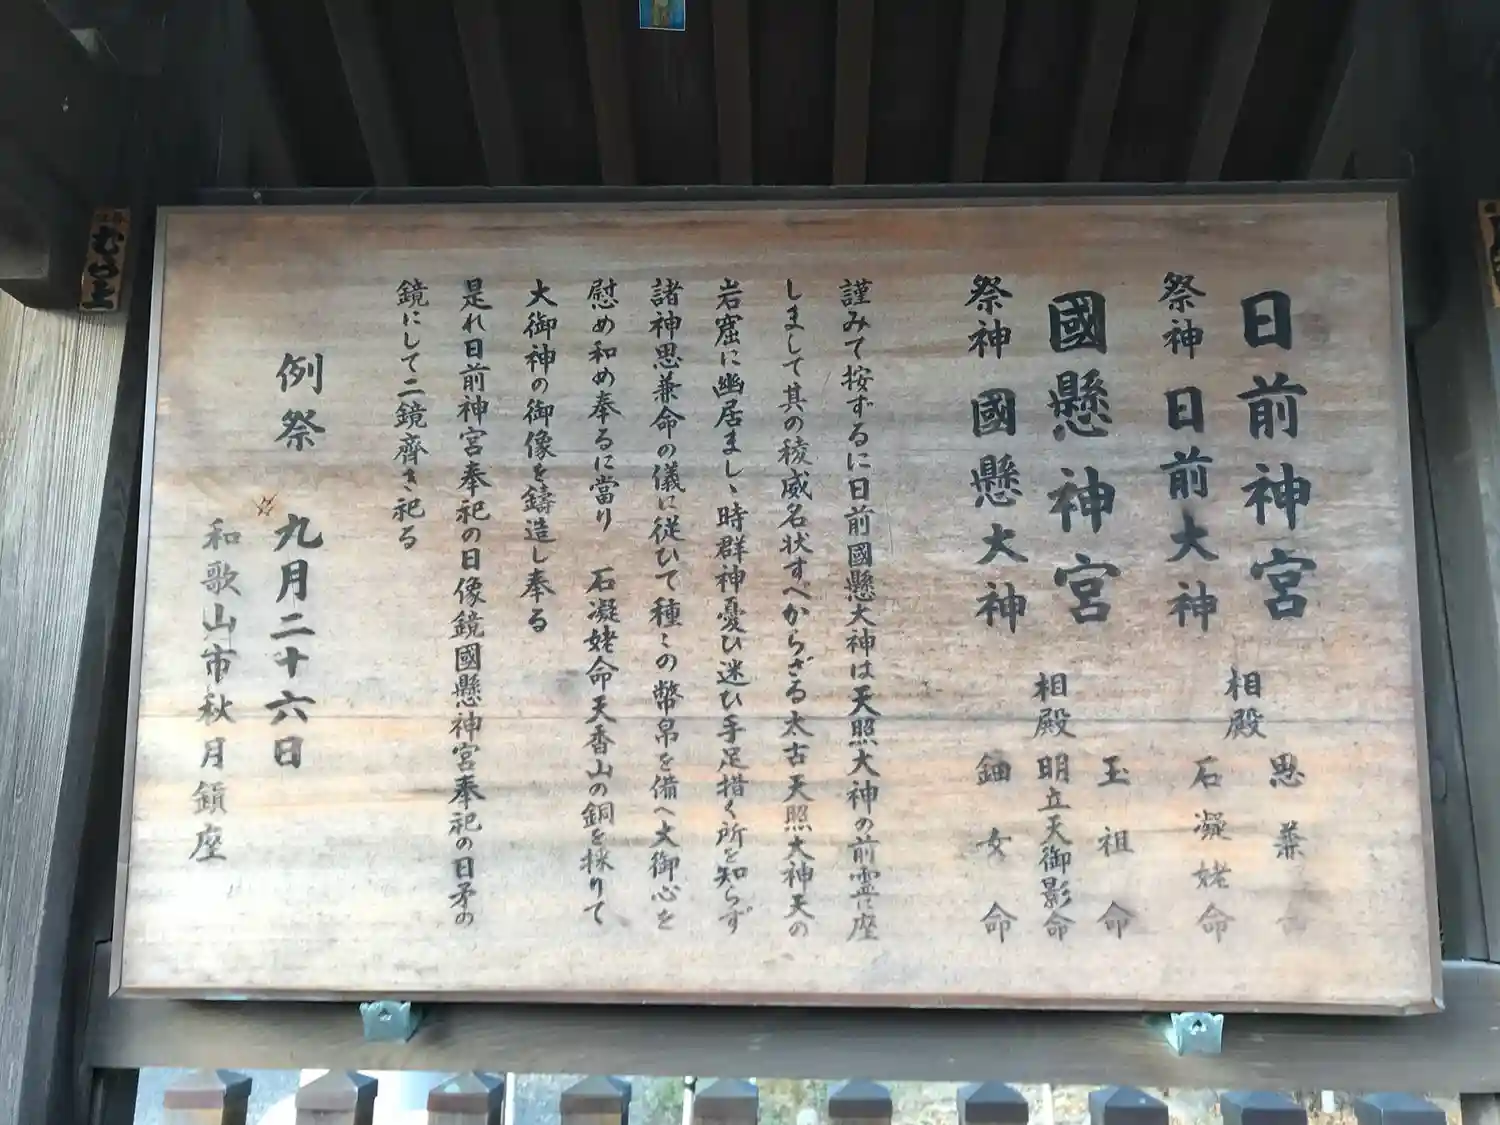 日前神宮
祭神 日前大神
相殿 思兼命
石凝姥命
國懸神宮
祭神 國懸大神
相殿 玉祖命
明立天御影命
鈿女命
謹みて按ずるに日前國懸大神は天照大神の前霊座
しまして其の稜威名状すべからざる太古天照大神天の
岩窟に幽居ましゝ時群神憂ひ迷ひ手足措く所を知らず
諸神思兼命の儀に従ひて種々の幣帛を備へ大御心を
慰め和め奉るに當り 石凝姥命天香山の銅を採りて
大御神の御像を鑄造し奉る
是れ日前神宮奉祀の日像鏡國懸神宮奉祀の日矛の
鏡にして二鏡齊き祀る
例祭 九月二十六日
和歌山市秋月鎮座